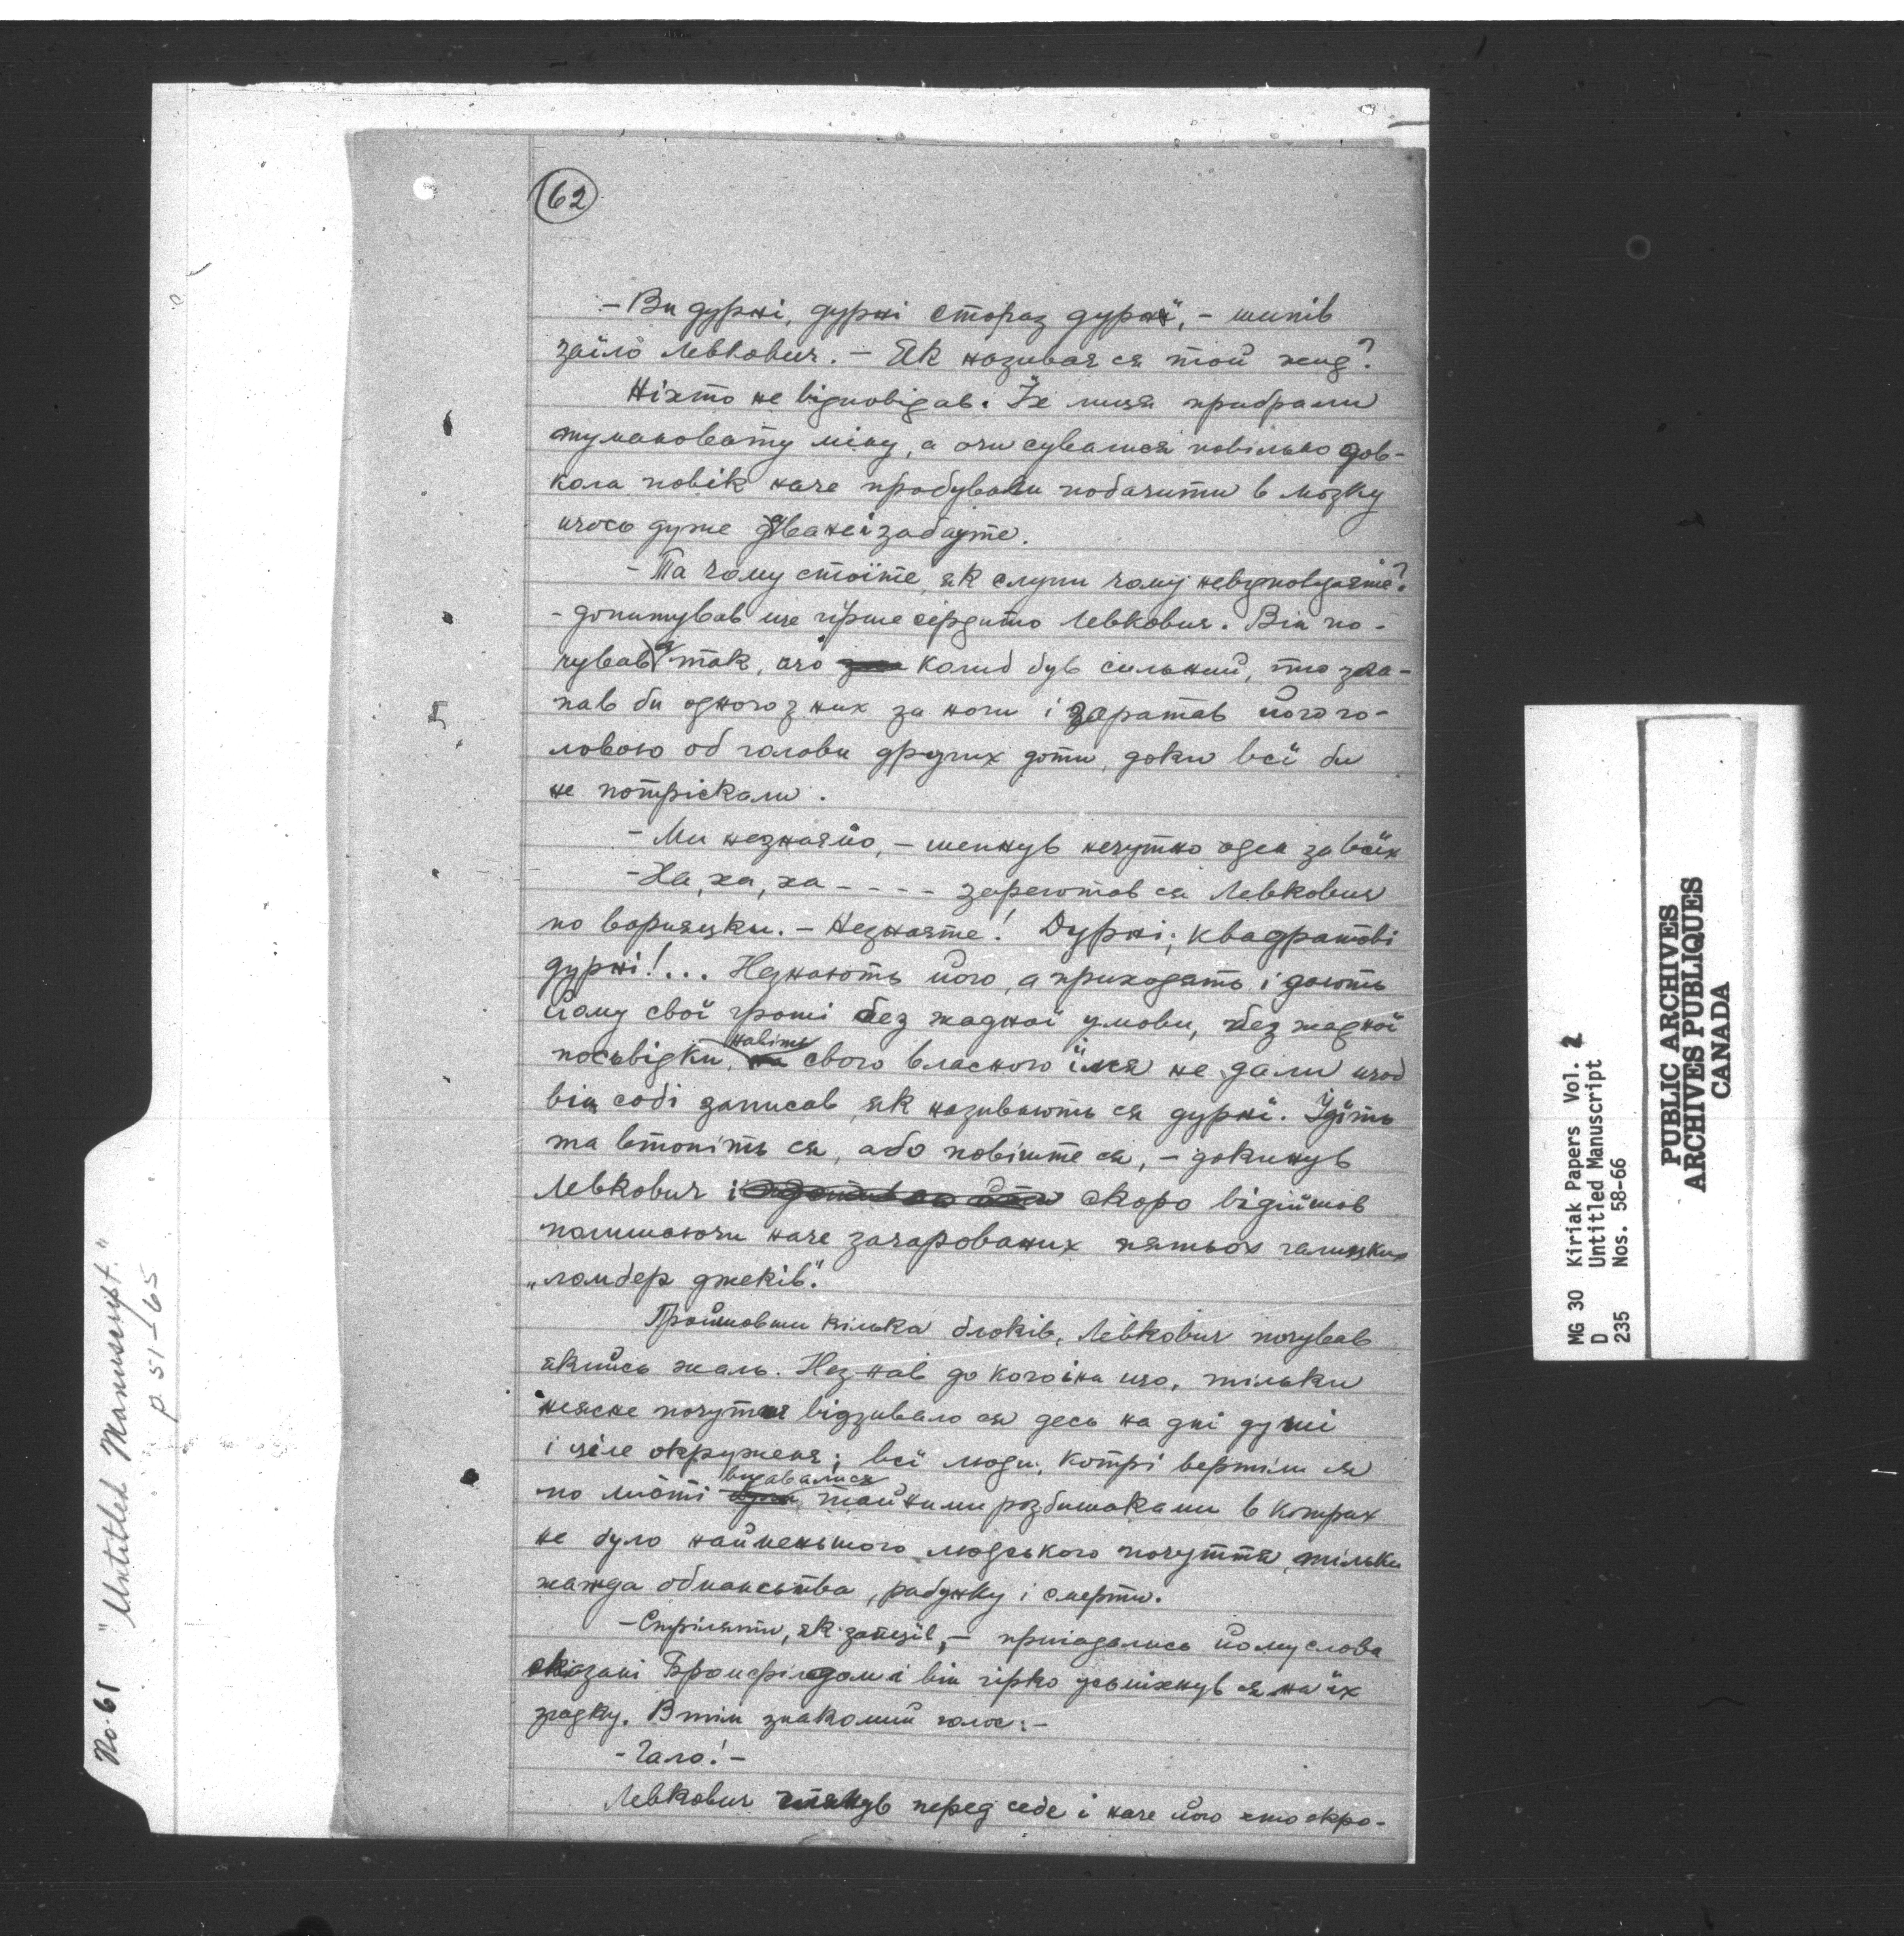 62
- Ви дурні, дурні стораз дурні, - шипів
заїло Левкович. - Як називаєся той жид?
Ніхто не відповідав. Їх лиця прибрали
тумановату міну, а очи сувалися повільно дов-
кола повік наче пробували побачити в мозку
щось дуже
- Та чому стоїте, як слупи чому невідповідаєте?
- допитував ще гірше сердито Левкович. Він по-
чував ся так, що колиб був сильний, то зла-
пав би одного з них за ноги і гаратав його го-
ловою об голови других доти, доки всї би
не потріскали.
- Ми незнаємо, - шепнув нечутно оден за всїх
- Ха, ха, ха - - - - зареготав ся Левкович
по варияцки. - Незнаєте! Дурні, квадратові
дурні!... Незнають його, а приходять і дають
йому свої гроші без жадної умови, без жадної
посьвідки, навіть свого власного імя не дали щоб
він собі записав, як називають ся дурні. Ідїть
та втопіть ся, або повіште ся, - докинув
Левкович і скоро відійшов
полишаючи наче зачарованих пятьох галицких
„ломбер джеків."
Пройшовши кілька блоків, Левкович почував
якийсь жаль. Незнав до кого і на що, тільки
неясне почутє відзивало ся десь на дні душі
і ціле окруженя; всї люди, котрі вертіли ся
по місті видавалися тайними розбишаками в котрих
не було найменьшого людського почуття, тільки
жажда обманьства, рабунку і смерти.
- Стріляти, як заяців, - пригадались йому слова
сказані Бромфілдом і він гірко усьміхнув ся на їх
згадку. Втім знакомий голос: -
- Гало! -
Левкович глянув перед себе і наче його хто скро-
No. 61 "Untitled Manuscript."
p. 51-65
MG 30 Kiriak Papers Vol. 2
D Untitled Manuscript
235 Nos. 58-66
PUBLIC ARCHIVES
ARCHIVES PUBLIQUES
CANADA